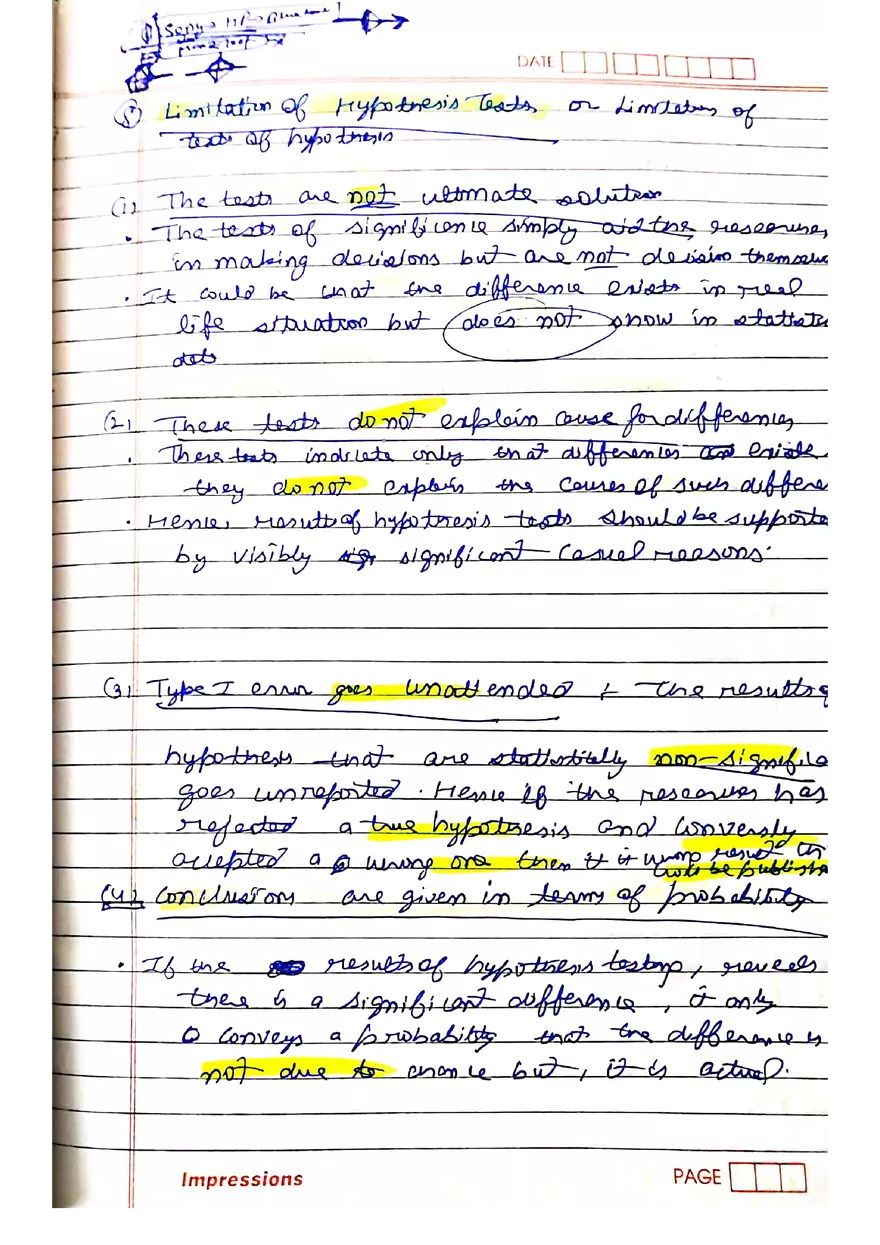 DATE
Limitation of Hypothesis Tests or Limitations of
tests of hypothesis
(1) The tests are not ultimate solution
• The tests of significance simply aid the researcher
in making decisions but are not decision themselve
• It could be that the difference exists in real
life situation but does not show in statistic
data
(2) These tests do not explain cause for differences
• These tests indicate only that differences exists
they do not explain the causes of such differe
• Hence, results of hypothesis tests should be supporte
by visibly significant casual reasons.
(3) Type I error goes unattended :- The results of
hypothesis that are statistically non-significa
goes unreported. Hence if the researcher has
rejected a true hypothesis and conversly
accepted a wrong one then it is wrong result
be publish
(4) Conclusions are given in terms of probability
• If the results of hypothesis testing, reveals
there is a significant difference, it only
conveys a probability that the difference is
not due to chance but, it is actual.
Impressions
PAGE